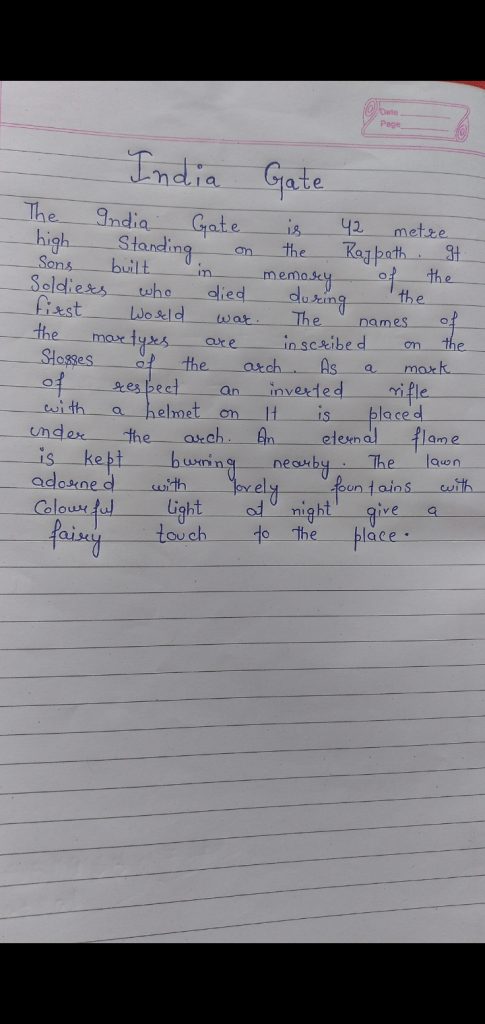 Date
Page
India Gate
The India Gate is 42 metre
high Standing on the Rajpath. It
Sons built in memory of the
Soldiers who died during the
first World war. The names of
the martyrs are inscribed on the
Stosses of the arch. As a mark
of respect an inverted rifle
with a helmet on It is placed
under the arch. An eternal flame
is kept burning nearby. The lawn
adorned with lovely fountains with
Colourful light at night give a
fairy touch to the place.